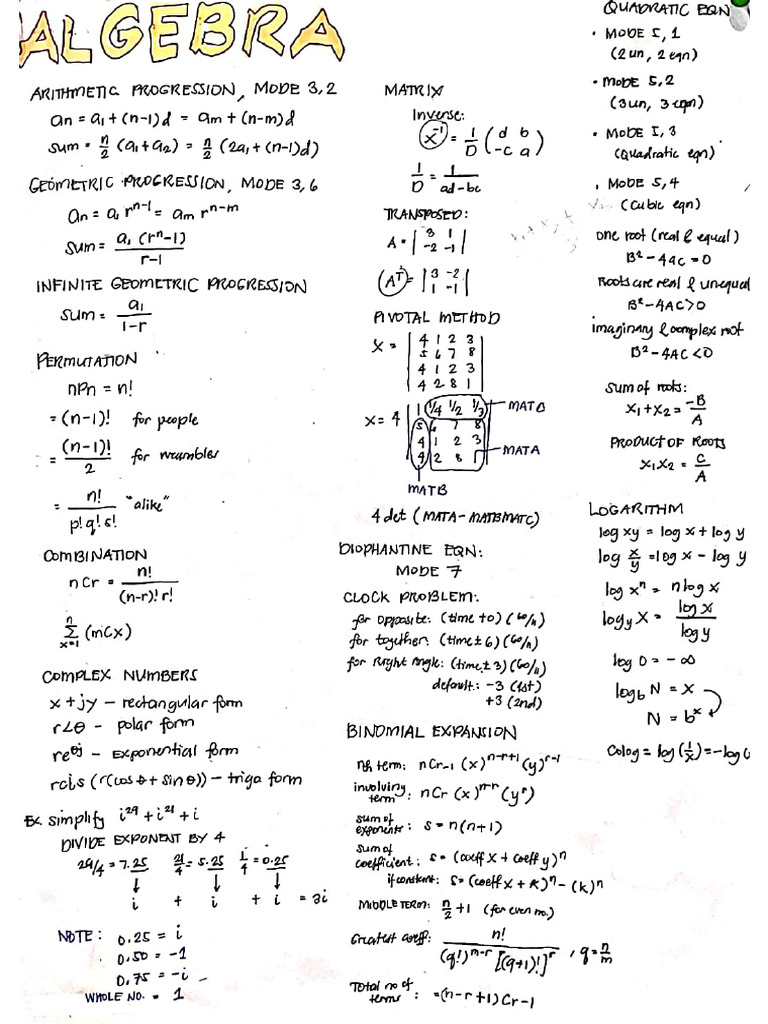 ALGEBRA
ARITHMETIC PROGRESSION, MODE 3,2
an = a₁ + (n-1)d = am + (n-m)d
sum = n/2 (a₁ + a₂) = n/2 (2a₁ + (n-1)d)
GEOMETRIC PROGRESSION, MODE 3,6
an = a₁ r^(n-1) = am r^(n-m)
sum = a₁ (r^n - 1) / r-1
INFINITE GEOMETRIC PROGRESSION
sum = a₁ / 1-r
PERMUTATION
nPn = n!
= (n-1)! for people
= (n-1)! / 2 for
= n! / p! q! s! "alike"
COMBINATION
nCr = n! / (n-r)! r!
n Σ x=1 (mCx)
COMPLEX NUMBERS
x + jy – rectangular form
r∠θ – polar form
re^θj – EXPONENTIAL form
rcis (r(cos θ + sin θ)) – triga form
Ex. simplify i^29 + i^21 + i
DIVIDE EXPONENT BY 4
29/4 = 7.25 21/4 = 5.25 1/4 = 0.25
↓ ↓ ↓
i + i + i = 3i
NOTE: 0.25 = i
0.50 = -1
0.75 = -i
WHOLE NO. = 1
MATRIX
Inverse:
x⁻¹ = 1/D (d b
-c a)
1/D = 1 / ad-bc
TRANSPOSED:
A = | 3 1 |
| -2 -1 |
(A^T) = | 3 -2 |
| 1 -1 |
PIVOTAL METHOD
x = | 4 1 2 3 |
| 5 6 7 8 |
| 4 1 2 3 |
| 4 2 8 1 |
x = 4 | 1 1/4 1/2 1/3 | MAT
| 5 6 7 8 |
| 4 1 2 3 | MATA
| 4 2 8 1 |
MATB
4 det (MATA - MATBMATC)
DIOPHANTINE EQN:
MODE 7
CLOCK PROBLEM:
for opposite: (time ± 0) (60/11)
for together: (time ± 6) (60/11)
for Right Angle: (time ± 3) (60/11)
default: -3 (1st)
+3 (2nd)
BINOMIAL EXPANSION
nth term: nCr-1 (x)^(n-r+1) (y)^(r-1)
involving term: nCr (x)^(n-r) (y^r)
sum of exponents: s = n(n+1)
sum of coefficient: s = (coeff x + coeff y)^n
if constant: s = (coeff x + k)^n - (k)^n
MIDDLE TERM: n/2 + 1 (for even no.)
Greatest coeff: n! / (q!)^(m-r) [(q+1)!]^r , q = n/m
Total no of terms: = (n-r+1) Cr-1
QUADRATIC EQN
• MODE 5, 1
(2un, 2eqn)
• MODE 5, 2
(3un, 3eqn)
• MODE 5, 3
(Quadratic eqn)
• MODE 5, 4
(cubic eqn)
one root (real & equal)
B² - 4ac = 0
Roots are real & unequal
B² - 4AC > 0
imaginary & complex root
B² - 4AC < 0
sum of roots:
x₁ + x₂ = -B/A
PRODUCT OF ROOTS
x₁x₂ = C/A
LOGARITHM
log xy = log x + log y
log x/y = log x - log y
log x^n = n log x
log_y x = log x / log y
log 0 = -∞
log_b N = x
N = b^x
Colog = log (1/x) = -log